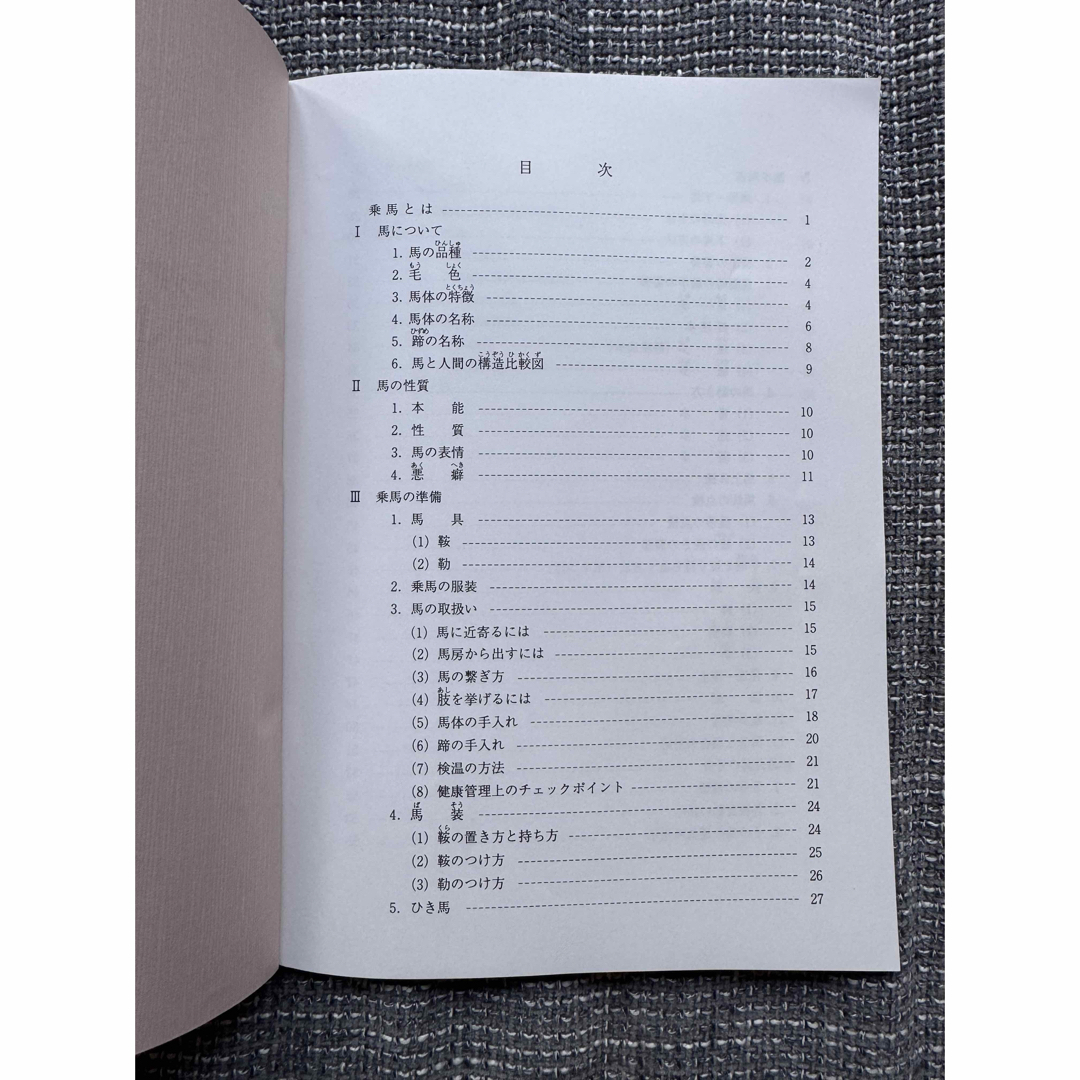 目 次
乗馬とは 1
Ⅰ 馬について
1. 馬の品種 2
2. 毛 色 4
3. 馬体の特徴 4
4. 馬体の名称 6
5. 蹄の名称 8
6. 馬と人間の構造比較図 9
Ⅱ 馬の性質
1. 本 能 10
2. 性 質 10
3. 馬の表情 10
4. 悪 癖 11
Ⅲ 乗馬の準備
1. 馬 具 13
(1) 鞍 13
(2) 勒 14
2. 乗馬の服装 14
3. 馬の取扱い 15
(1) 馬に近寄るには 15
(2) 馬房から出すには 15
(3) 馬の繋ぎ方 16
(4) 肢を挙げるには 17
(5) 馬体の手入れ 18
(6) 蹄の手入れ 20
(7) 検温の方法 21
(8) 健康管理上のチェックポイント 21
4. 馬 装 24
(1) 鞍の置き方と持ち方 24
(2) 鞍のつけ方 25
(3) 勒のつけ方 26
5. ひき馬 27